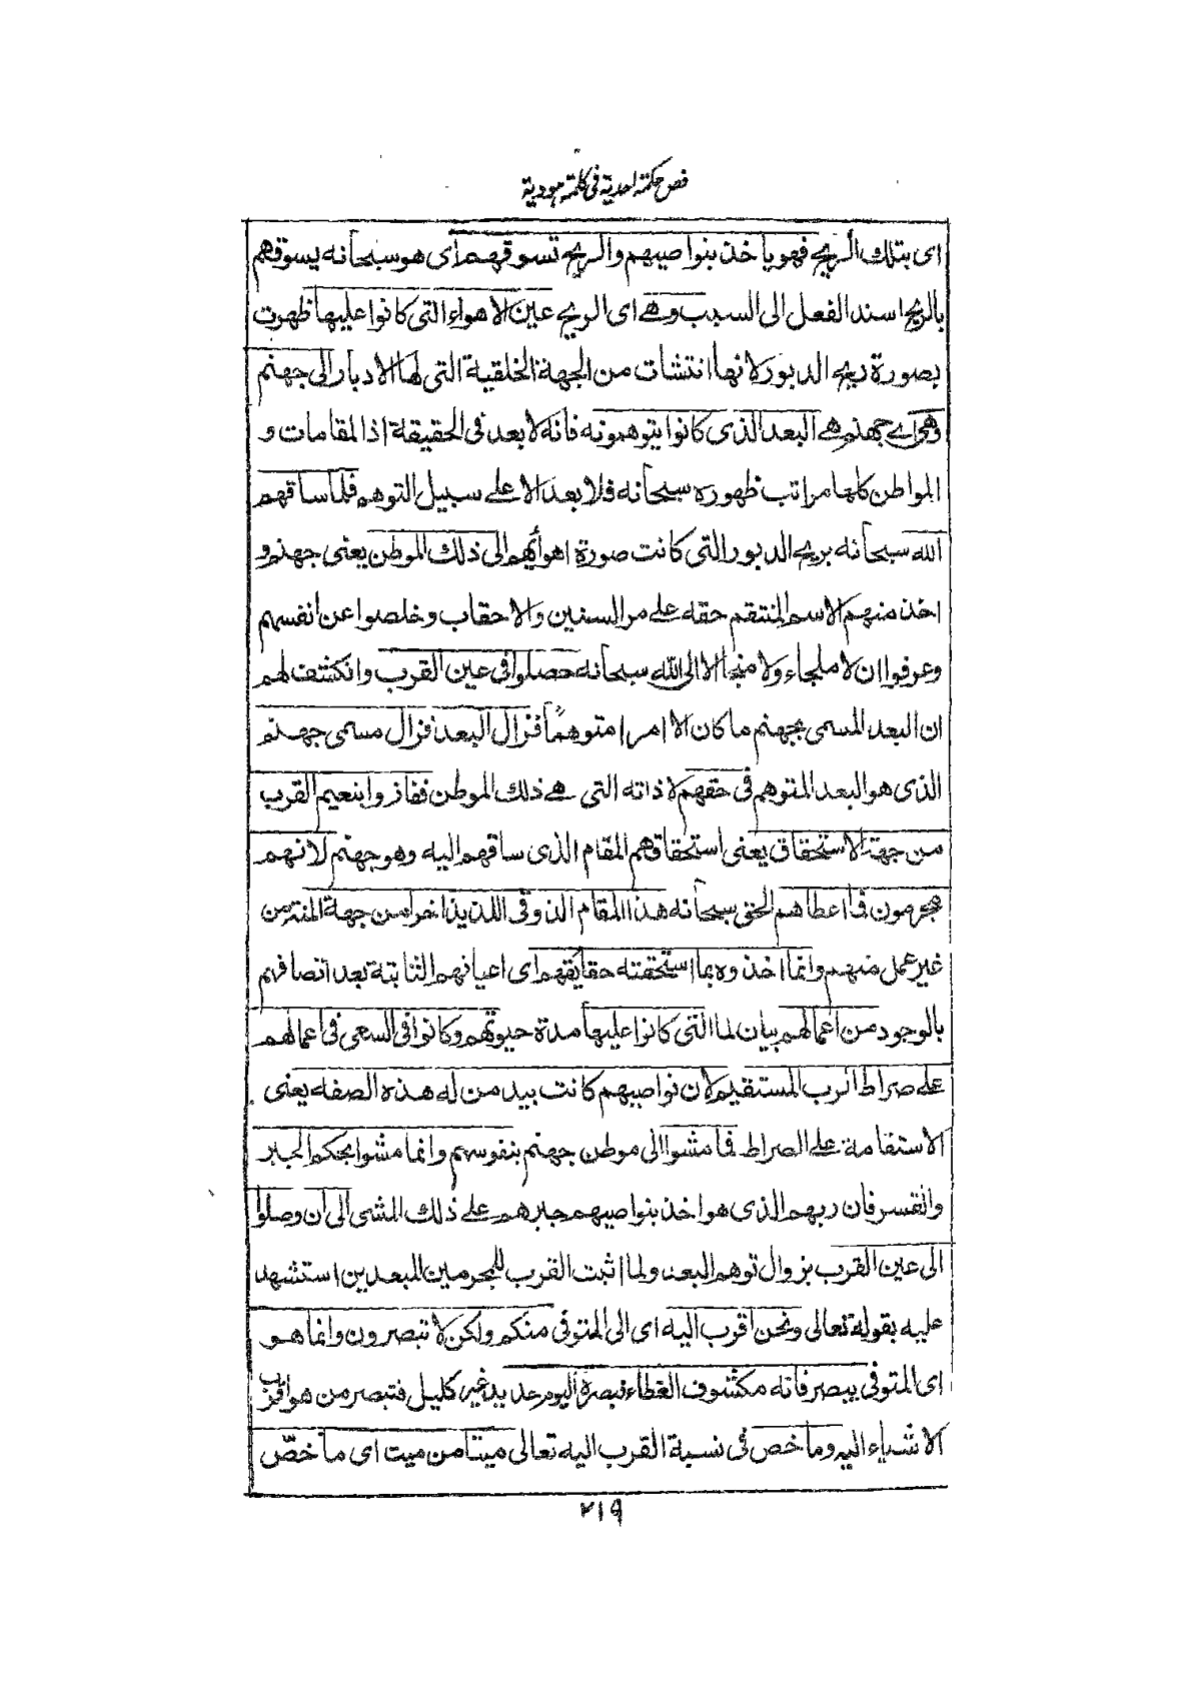 فص حكمة احدية في كلمة هودية
اى بتلك الريح فهو ياخذ بنواصيهم والريح تسوقهم اى هو سبحانه يسوقهم
بالريح اسند الفعل الى السبب وهے اى الريح عين الاهواء التى كانوا عليها ظهرت
بصورة ريح الدبور لانها انتشات من الجهة الخلقية التى لها الادبار الى جهنم
وهى اے جهنم هے البعد الذى كانوا يتوهمونه فانه لا بعد فى الحقيقة اذ المقامات و
المواطن كلها مراتب ظهوره سبحانه فلا بعد الا علے سبيل التوهم فلما ساقهم
الله سبحانه بريح الدبور التى كانت صورة اهوأيهم الى ذلك الموطن يعنى جهنم و
اخذ منهم الاسم المنتقم حقه علے مر السنين والاحقاب وخلصوا عن انفسهم
وعرفوا ان لا ملجاء ولا منجا الا الى الله سبحانه حصلوا فى عين القرب وانكشف لهم
ان البعد المسمى بجهنم ما كان الا امرا متوهمًا فزال البعد فزال مسمى جهنم
الذى هو البعد المتوهم فى حقهم لا ذاته التى هے ذلك الموطن ففازوا بنعيم القرب
من جهة الاستحقاق يعنى استحقاقهم المقام الذى ساقهم اليه وهو جهنم لانهم
مجرمون فما اعطاهم الحق سبحانه هذا المقام الذوقى اللذيذ اخرا من جهة المنة من
غير عمل منهم وانما اخذوه بما استحقته حقايقهم اى اعيانهم الثابتة بعد اتصافهم
بالوجود من اعمالهم بيان لما التى كانوا عليها مدة حيوتهم وكانوا فى السعى فى اعمالهم
علے صراط الرب المستقيم لان نواصيهم كانت بيد من له هذه الصفه يعنى
الاستقامة علے الصراط فما مشوا الى موطن جهنم بنفوسهم وانما مشوا بحكم الجبر
والقسر فان ربهم الذى هو اخذ بنواصيهم جبرهم علے ذلك المشى الى ان وصلوا
الى عين القرب بزوال توهم البعد ولما اثبت القرب للمجرمين المبعدين استشهد
عليه بقوله تعالى ونحن اقرب اليه اى الى المتوفى منكم ولكن لا تبصرون وانما هو
اى المتوفى يبصر فانه مكشوف الغطاء فبصره اليوم حديد غير كليل فتبصر من هو اقرب
الاشياء اليه وما خص فى نسبة القرب اليه تعالى ميتا من ميت اى ما خصّ
٢١٩